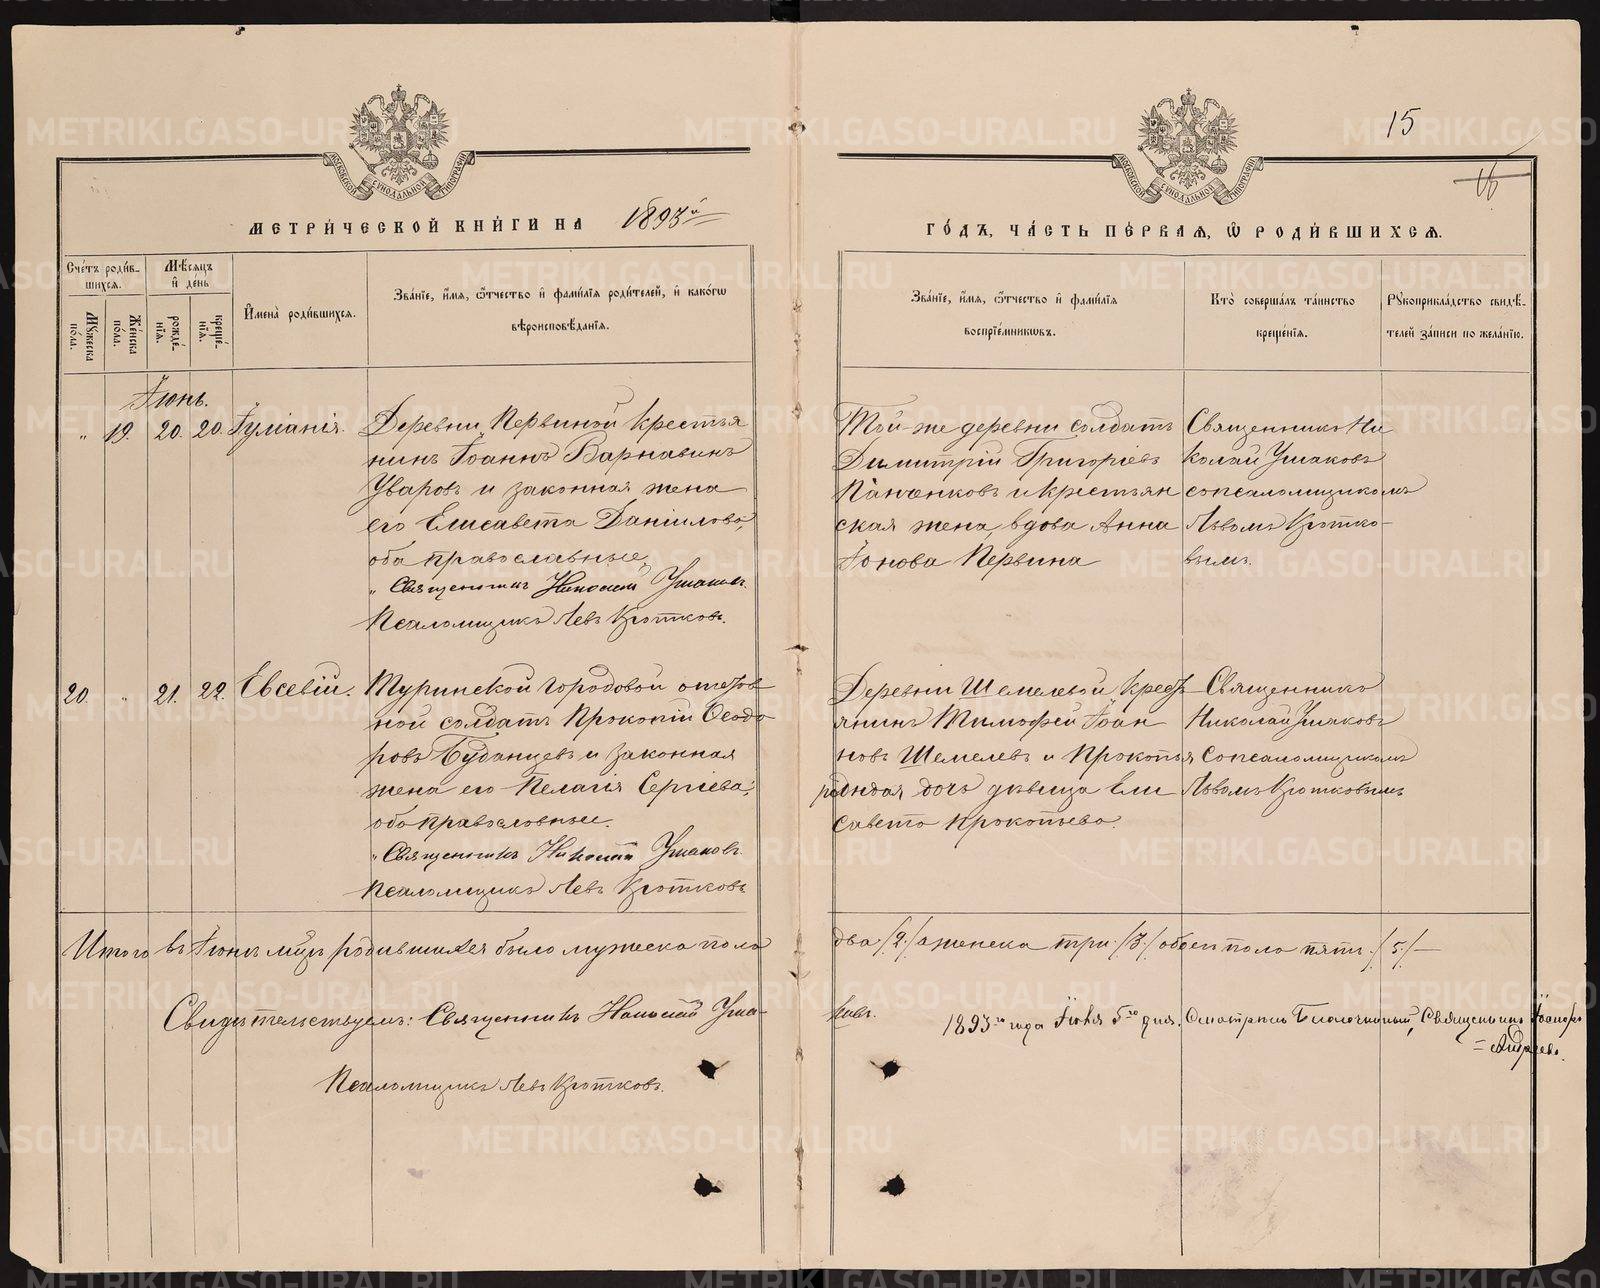 15
16
МЕТРИ́ЧЕСКОЙ КНИ́ГИ НА 1893й
ГО́ДЪ, ЧА́СТЬ ПЕ́РВАЯ, Ѡ РОДИ́ВШИХСЯ.
Сче́тъ роди́вшихся.
Мѣ́сяцъ и де́нь
Мꙋ́жеска по́ла.
Же́нска по́ла.
рожде́нїя.
креще́нїя.
И҆мена̀ роди́вшихся.
Зва́нїе, и҆́мя, ѻ҆́тчество и҆ фами́лїя роди́телей, и҆ како́гѡ вѣроисповѣ́данїя.
Зва́нїе, и҆́мя, ѻ҆́тчество и҆ фами́лїя воспрїе́мникѡвъ.
Кто̀ соверша́лъ та́инство креще́нїя.
Рꙋкоприкла́дство свидѣ́телей за́писи по жела́нїю.
Іюнь.
" 19. 20. 20. Іуліанія.
Деревни Первиной крестья
нинъ Іоаннъ Варнавинъ
Уваровъ и законная жена
его Елисавета Даніилова,
оба православные
"Священникъ Николай Ушаковъ.
Псаломщикъ Левъ Кротковъ.
Той-же деревни солдатъ
Димитрій Григоріевъ
Панченковъ и крестьян
ская жена, вдова Анна
Іонова Первина
Священникъ Ни
колай Ушаковъ
съ псаломщикомъ
Львомъ Кротко-
вымъ.
20. " 21. 22. Евсевій.
Туринской городовой
ной солдатъ Прокопій Ѳеодо
ровъ Буданцевъ и законная
жена его Пелагія Сергіева;
оба православные.
"Священникъ Николай Ушаковъ.
Псаломщикъ Левъ Кротковъ
Деревни Шемелевой крест
янинъ Тимофей Іоан
новъ Шемелевъ и Прокопья
родная дочь дѣвица Ели
савета Прокопьева.
Священникъ
Николай Ушаковъ
съ псаломщикомъ
Львомъ Кротковымъ
Итого въ Іюнѣ мцѣ родившихся было мужеска пола два /2/ а женска три /3/ обоего пола пять /5/ —
Свидѣтельствуемъ: Священникъ Николай Ушаковъ.
Псаломщикъ Левъ Кротковъ.
1893го года Іюля 5го дня. Смотрилъ Благочинный, Священникъ
= Андреевъ.
METRIKI.GASO-URAL.RU